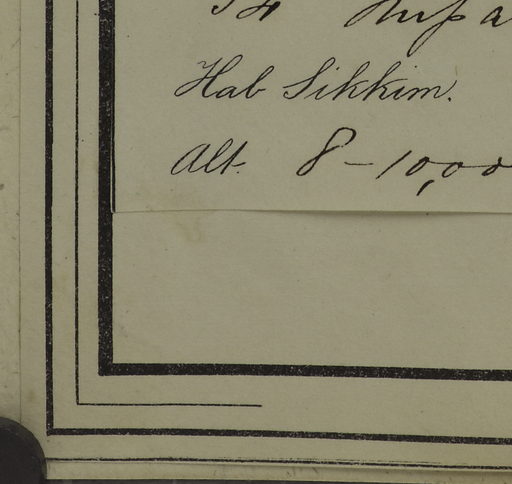 Hab Sikkim.
Alt. 8-10,00